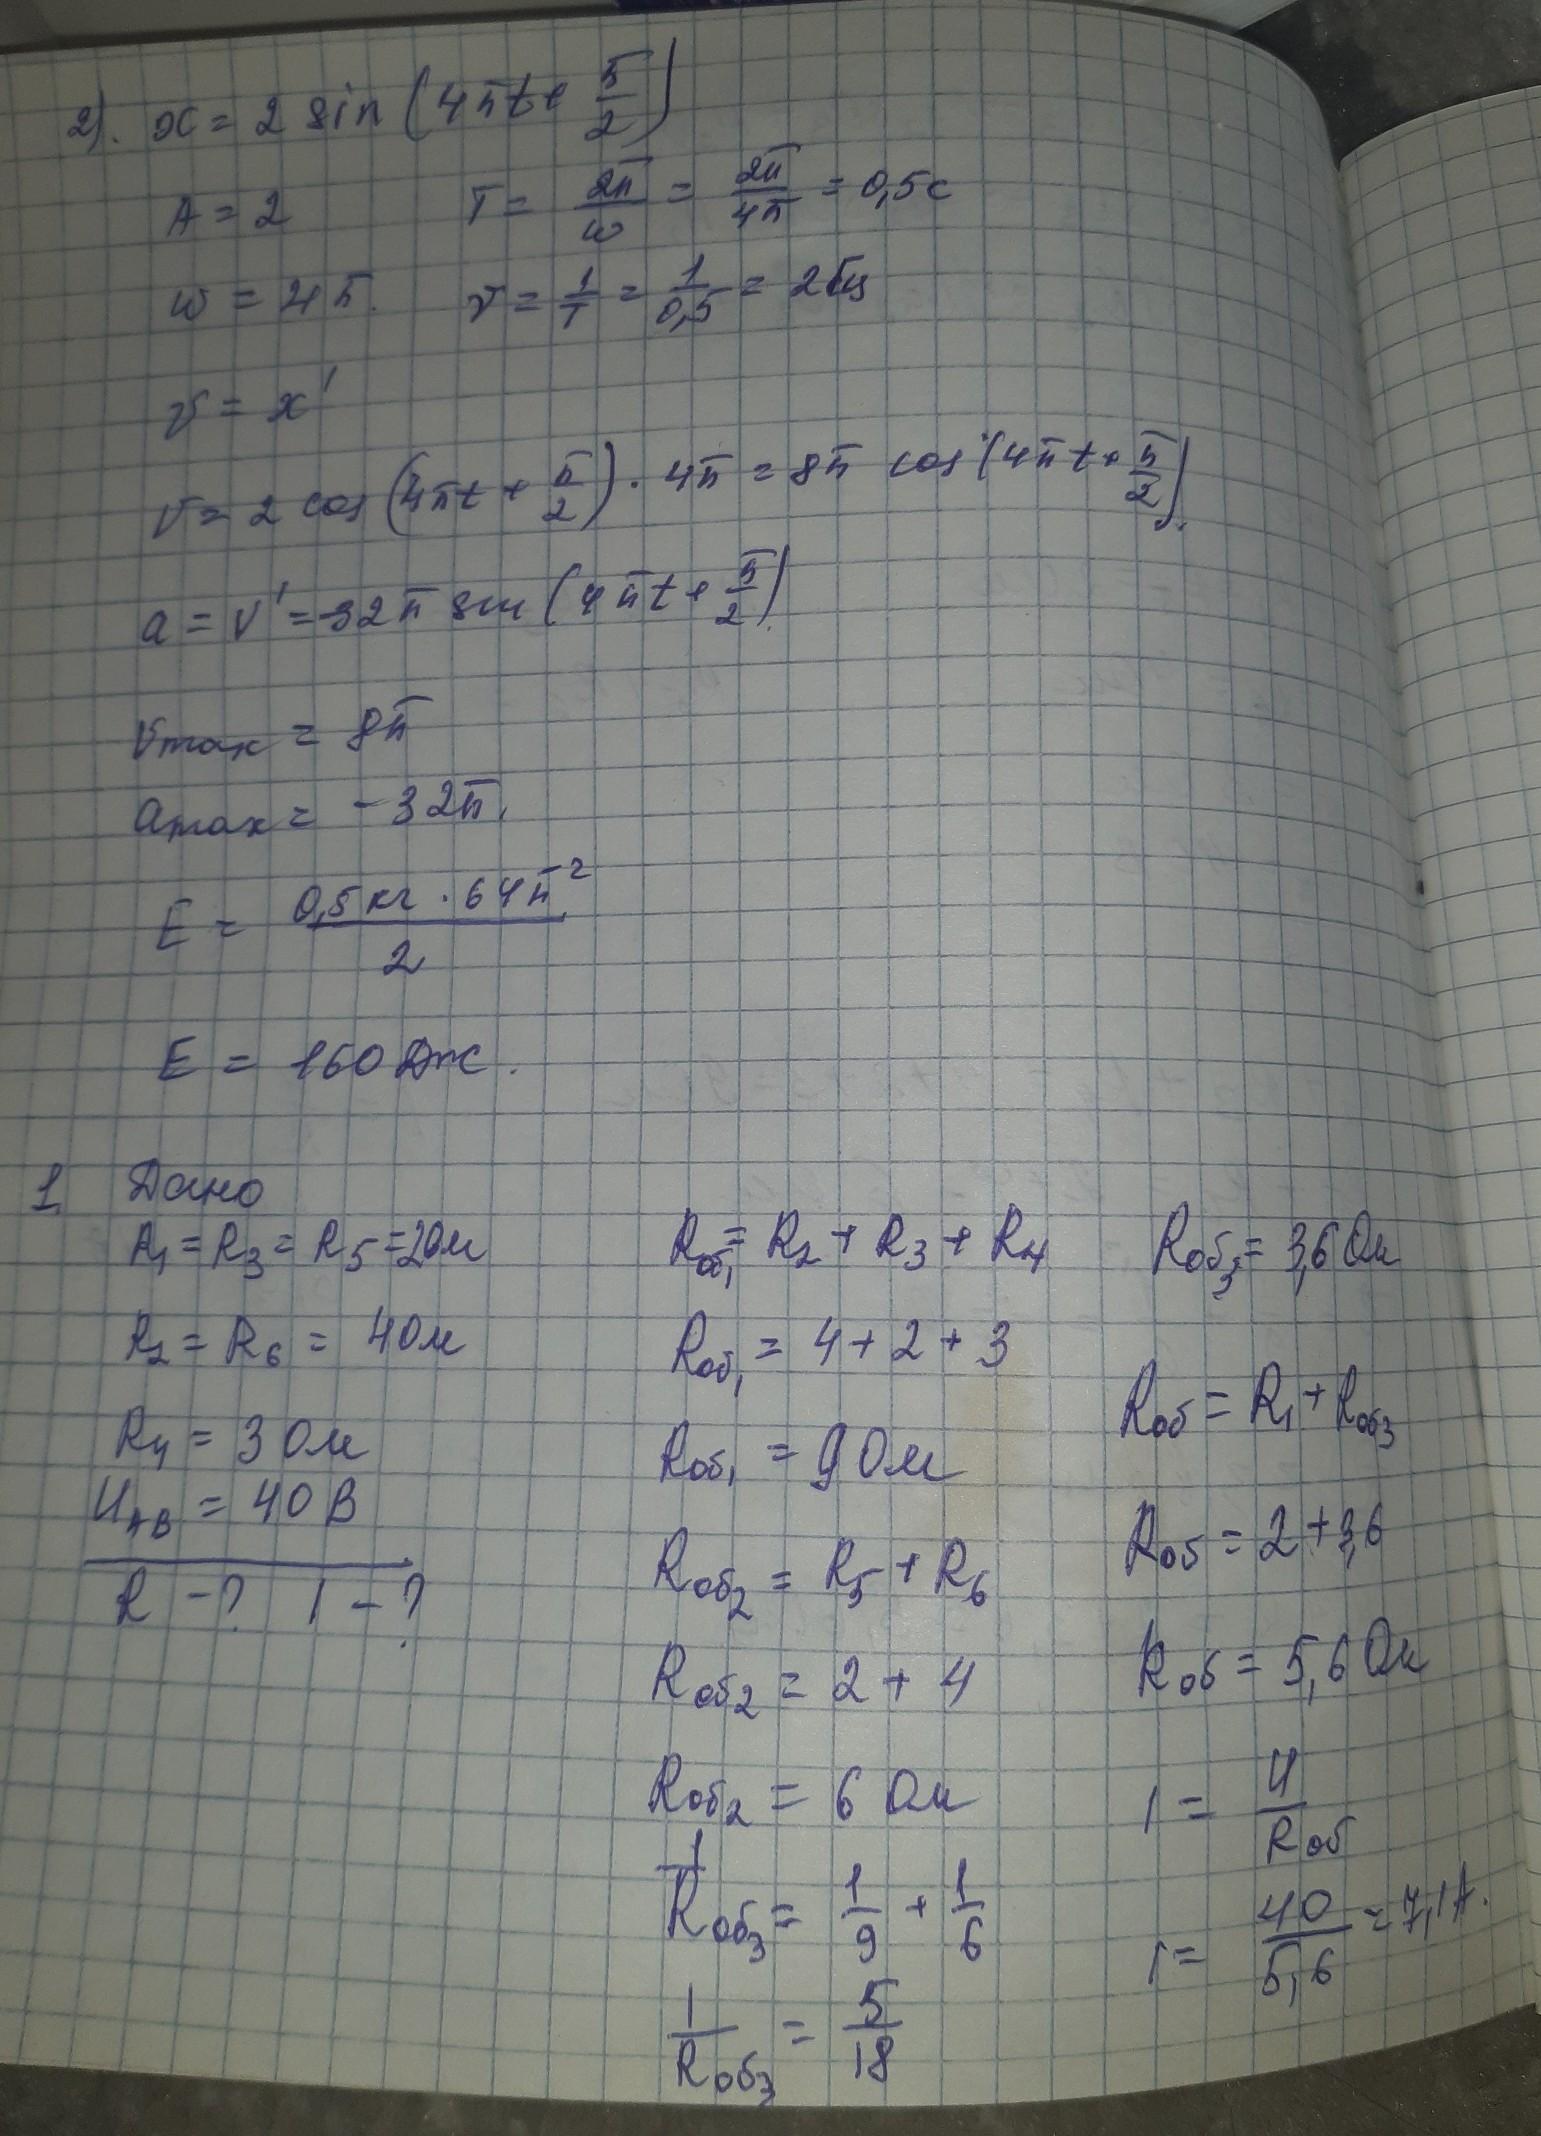 2). x = 2 sin (4πt + π/2)
A = 2 T = 2π/ω = 2π/4π = 0,5с
ω = 4π. ν = 1/T = 1/0,5 = 2Гц
v = x'
v = 2 cos (4πt + π/2) · 4π = 8π cos (4πt + π/2).
a = v' = -32π sin (4πt + π/2).
vmax = 8π
amax = -32π.
E = 0,5 кг · 64π²/2
E = 160 Дж.
1 Дано
R₁ = R₃ = R₅ = 2Ом
R₂ = R₆ = 4Ом
R₄ = 3 Ом
UAB = 40 В
R - ? I - ?
Rоб₁ = R₂ + R₃ + R₄
Rоб₁ = 4 + 2 + 3
Rоб₁ = 9 Ом
Rоб₂ = R₅ + R₆
Rоб₂ = 2 + 4
Rоб₂ = 6 Ом
1/Rоб₃ = 1/9 + 1/6
1/Rоб₃ = 5/18
Rоб₃ = 3,6 Ом
Rоб = R₁ + Rоб₃
Rоб = 2 + 3,6
Rоб = 5,6 Ом
I = U/Rоб
I = 40/5,6 = 7,1А.